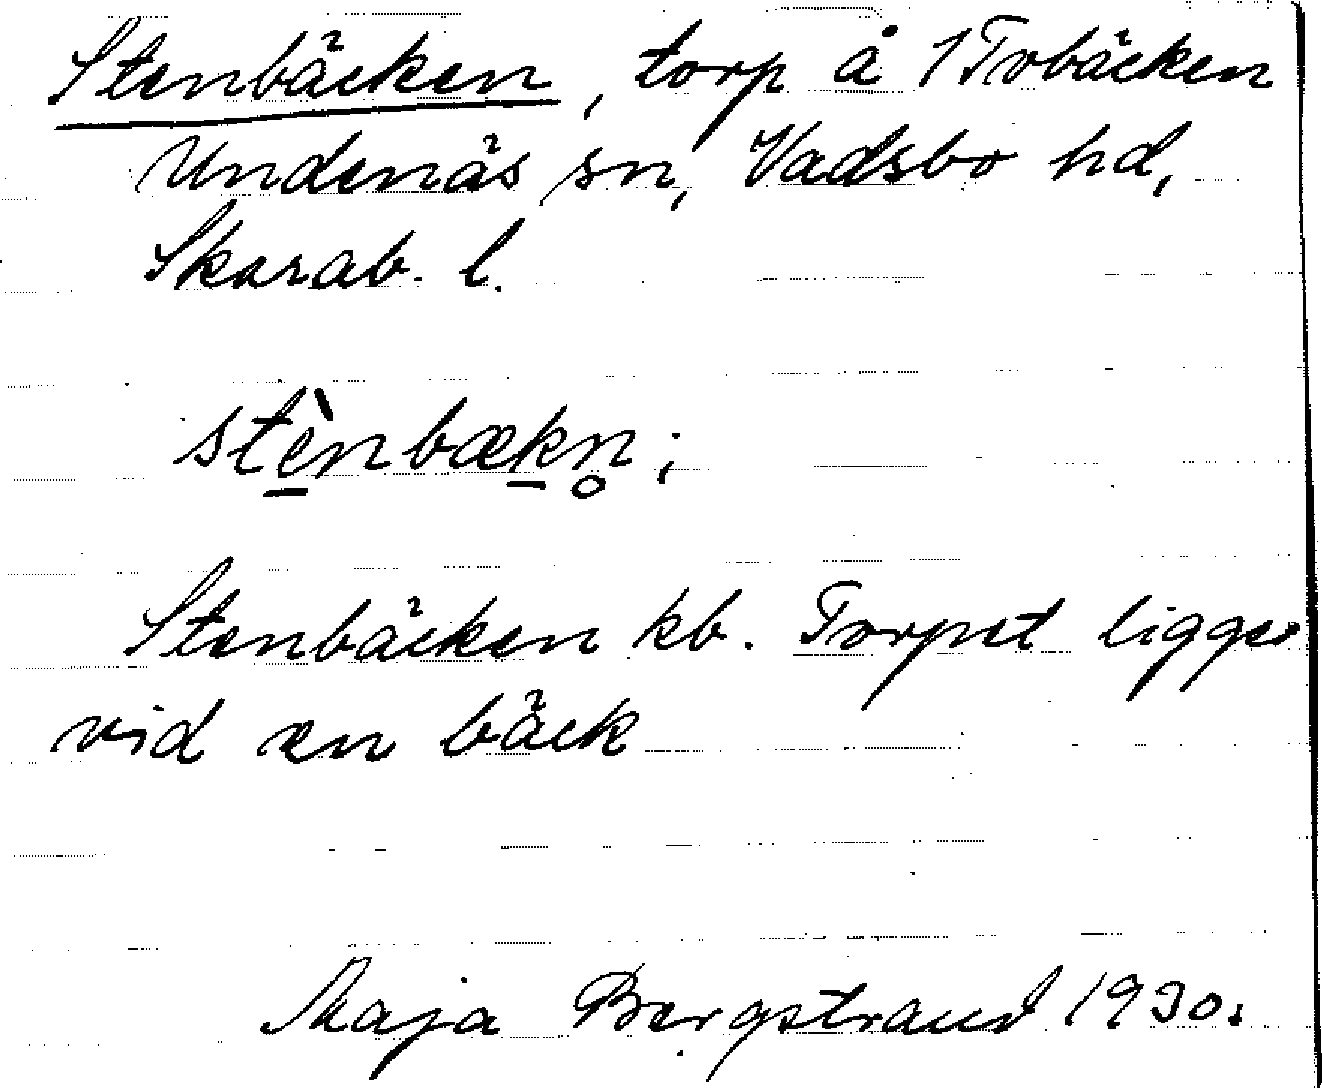 Stenbäcken, torp å 1 Tvbäcken
Undenäs sn, Vadsbo hd,
Skarab. l.
stènbækn̥;
Stenbäcken kb. Torpet ligger
vid en bäck
Maja Bergstrand 1930.